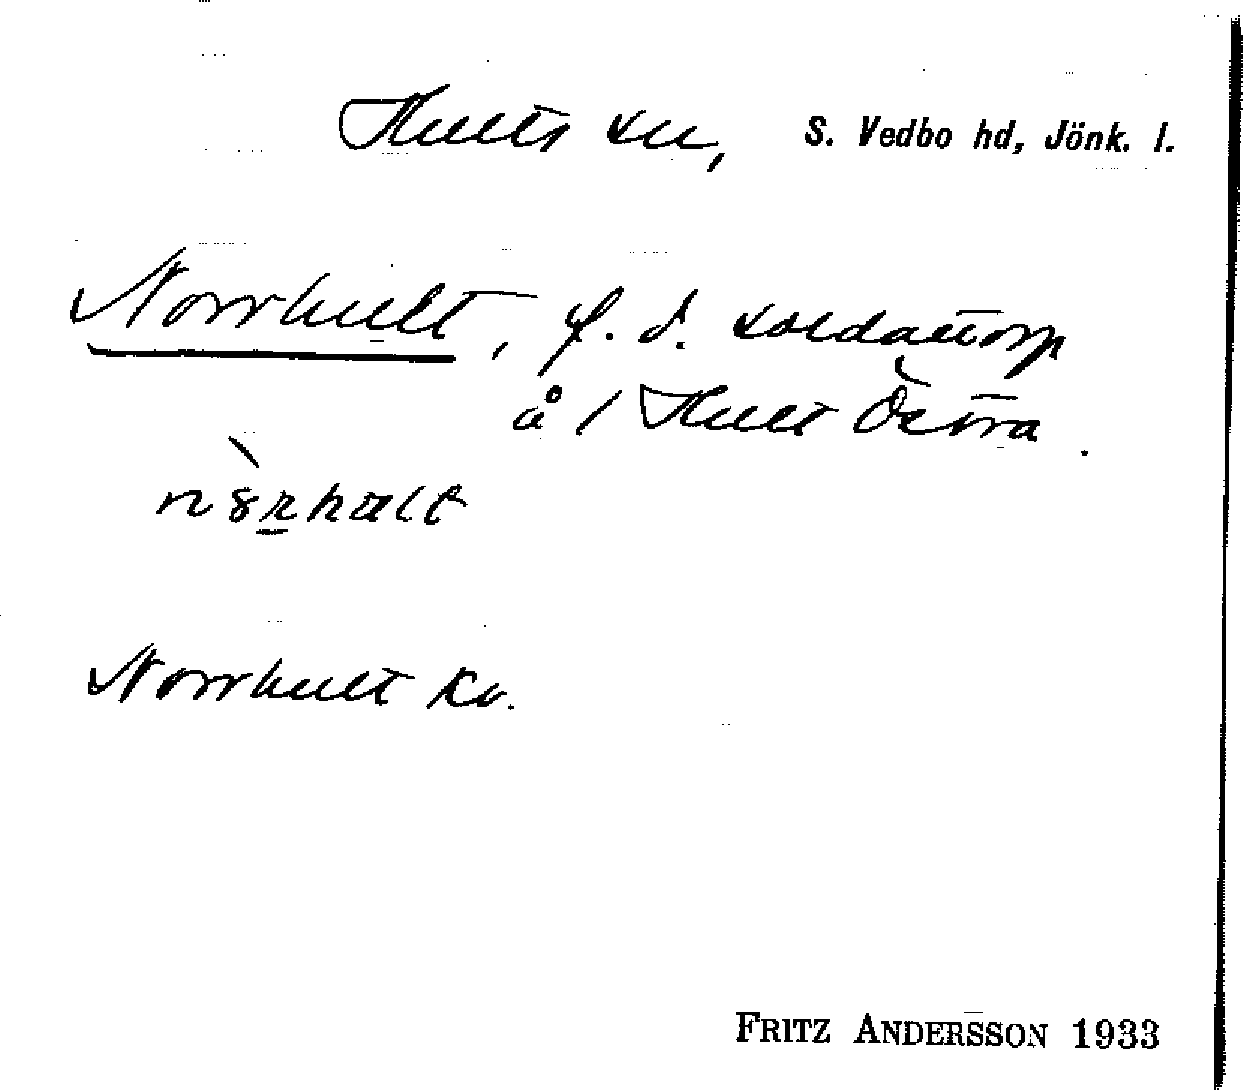 Hults sn, S. Vedbo hd, Jönk. l.
Norrhult, f. d. soldattorp
å 1 Hult Östra.
Norrhult Kv.
FRITZ ANDERSSON 1933